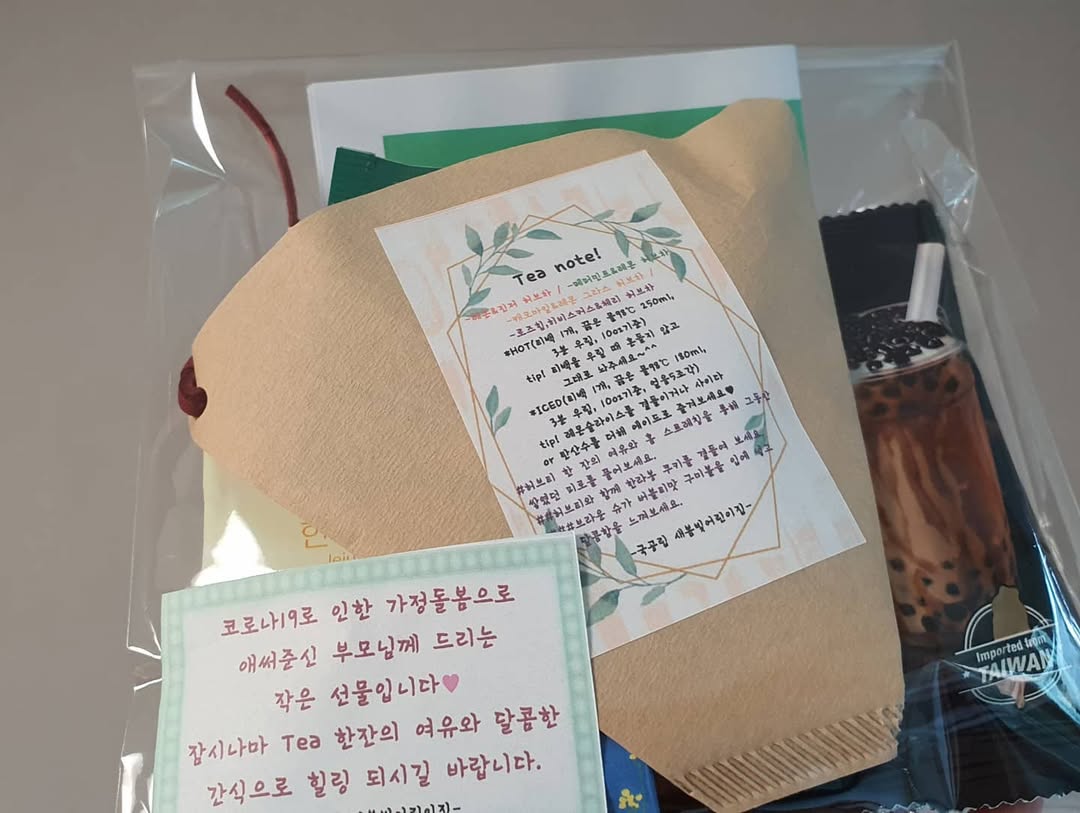 Tea note!
-레몬&진저 허브차 / -페퍼민트&레몬 허브차
-캐모마일&레몬 그라스 허브차 /
-로즈힙,히비스커스&체리 허브차
*HOT(티백 1개, 끓은 물98℃ 250ml,
3분 우림, 10oz기준)
tip! 티백을 우릴 때 흔들지 않고
그대로 놔주세요~^^
*ICED(티백 1개, 끓은 물98℃ 180ml,
3분 우림, 10oz기준, 얼음5조각)
tip! 레몬슬라이스를 곁들이거나 사이다
or 탄산수를 더해 에이드로 즐겨보세요♥
#허브티 한 잔의 여유와 홈 스트레칭을 통해 그동안
쌓였던 피로를 풀어보세요.
##허브티와 함께 한라봉 쿠키를 곁들여 보세요.
###브라운 슈가 버블티맛 구미볼을 입에 넣고
달콤함을 느껴보세요.
-국공립 새봄빛어린이집-
한
Imported from
TAIWAN
코로나19로 인한 가정돌봄으로
애써준신 부모님께 드리는
작은 선물입니다♥
잠시나마 Tea 한잔의 여유와 달콤한
간식으로 힐링 되시길 바랍니다.